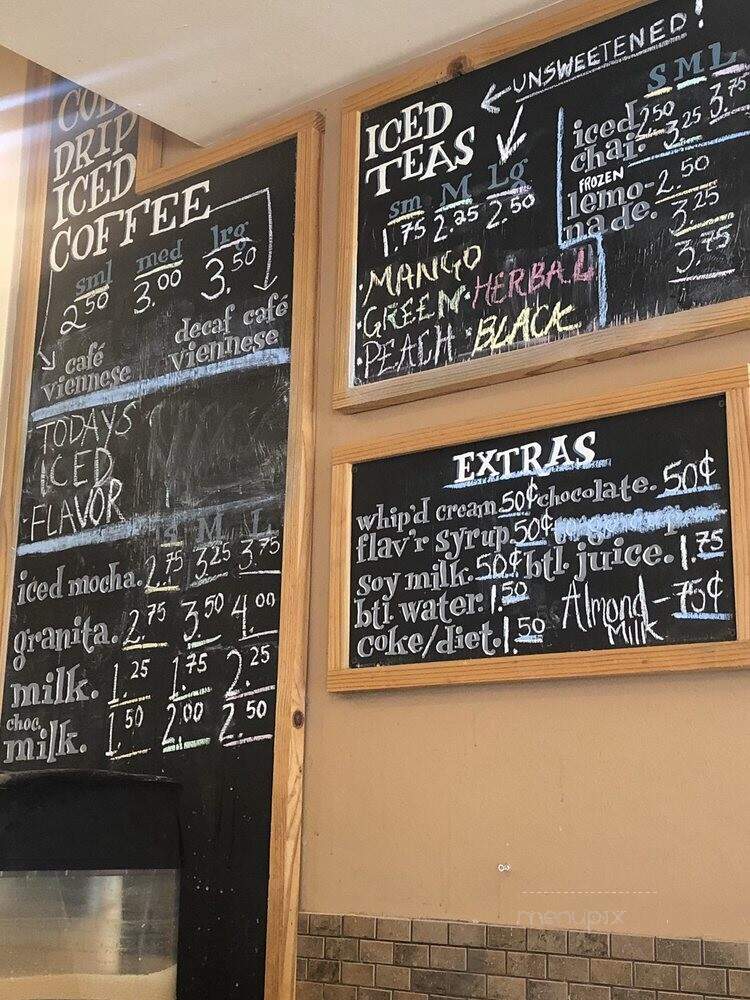 COLD
DRIP
ICED
COFFEE
sml med lrg
2.50 3.00 3.50
café viennese
decaf café viennese
TODAYS
ICED
FLAVOR
S M L
iced mocha. 2.75 3.25 3.75
granita. 2.75 3.50 4.00
milk. 1.25 1.75 2.25
choc. milk. 1.50 2.00 2.50
ICED TEAS
UNSWEETENED!
sm M Lg
1.75 2.25 2.50
·MANGO
·GREEN ·HERBAL
·PEACH ·BLACK
S M L
iced chai. 2.50 3.25 3.75
FROZEN
lemo-nade. 2.50
3.25
3.75
EXTRAS
whip'd cream 50¢ chocolate. 50¢
flav'r syrup. 50¢
soy milk. 50¢ btl. juice. 1.75
btl. water. 1.50 Almond Milk - 75¢
coke/diet. 1.50
menupix